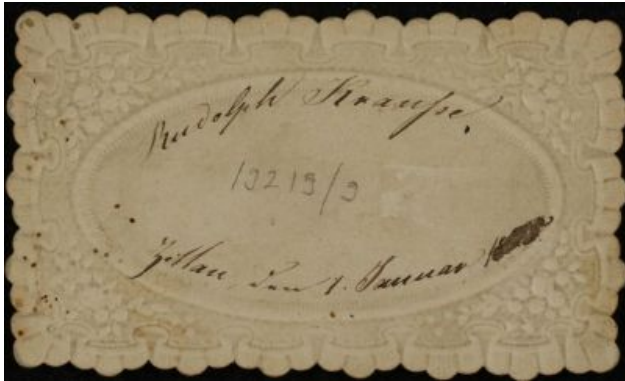 Rudolph Krauße.
19219/9
Zittau, den 1. Januar 18